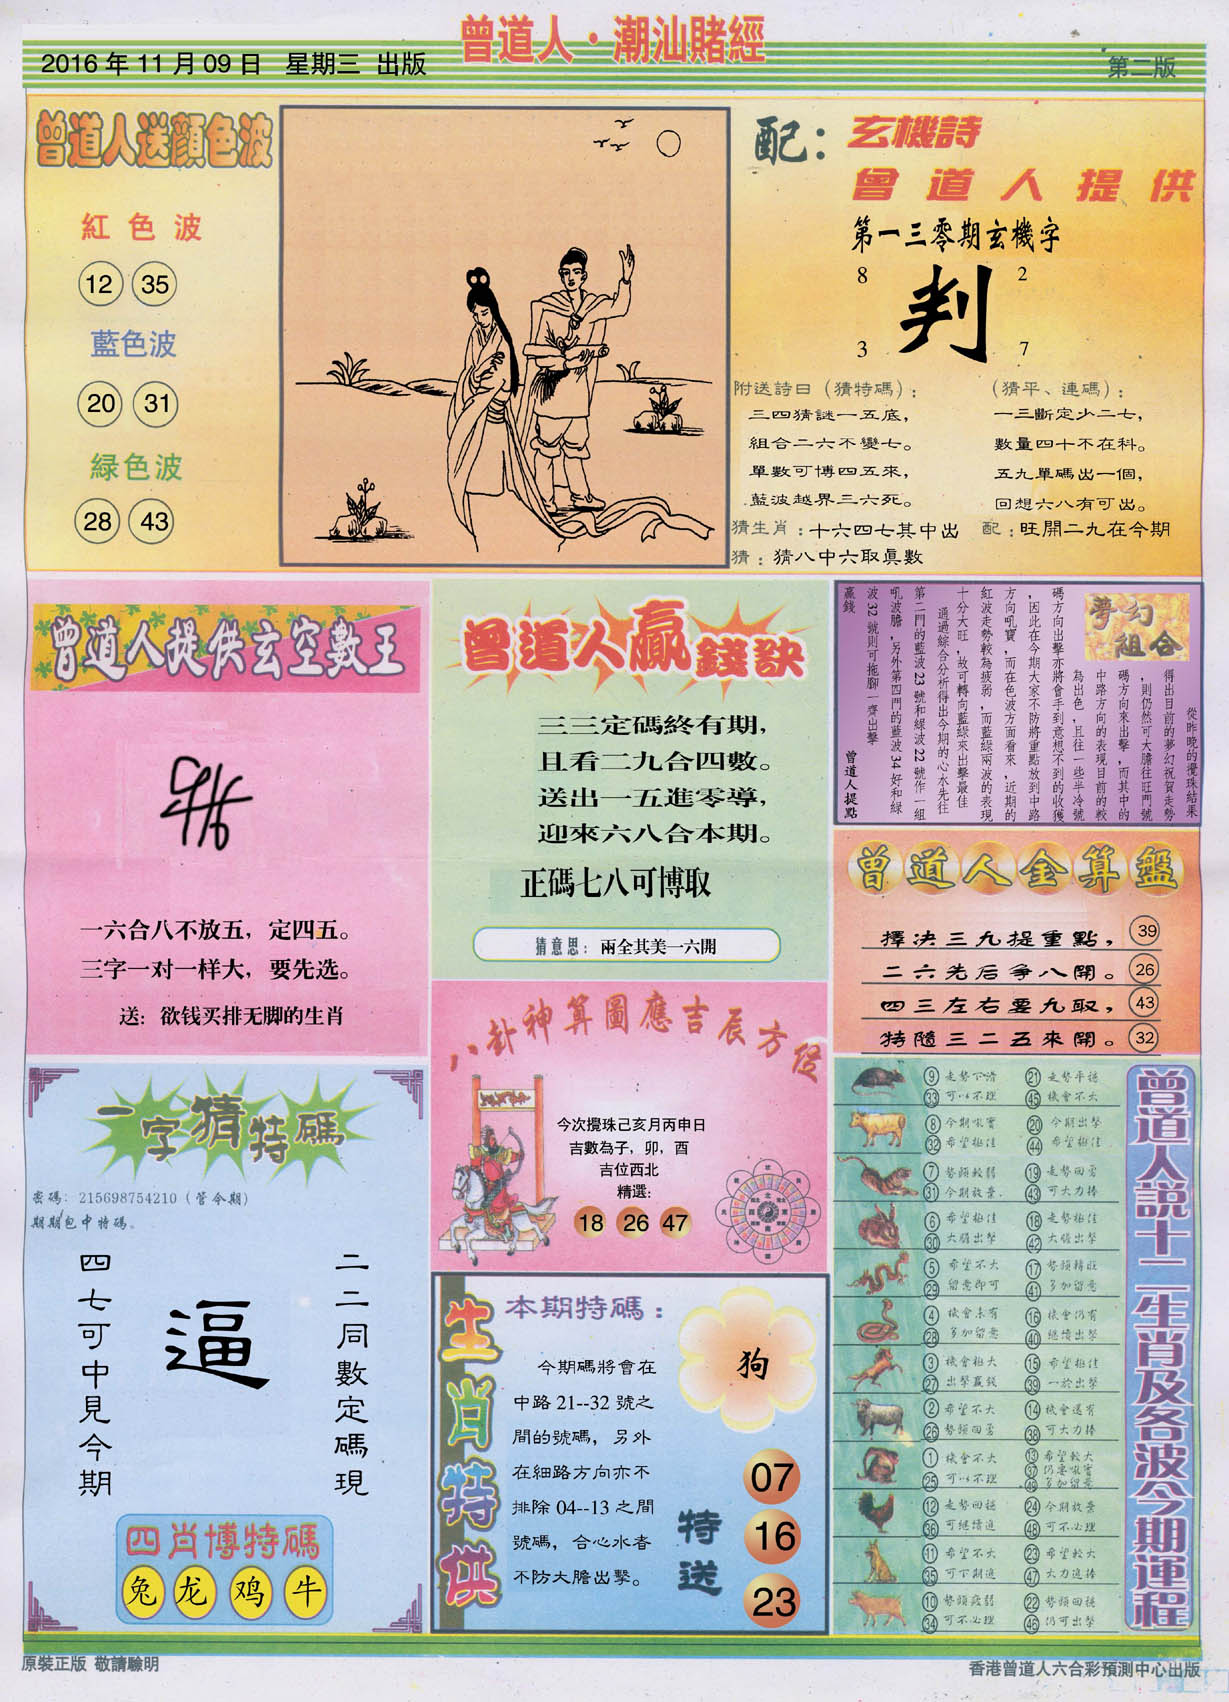 2016 年 11 月 09 日 星期三 出版
曾道人·潮汕賭經
第二版
曾道人送顏色波
紅色波
12 35
藍色波
20 31
緑色波
28 43
配：玄機詩
曾道人提供
第一三零期玄機字
8 2
判
3 7
附送詩曰（猜特碼）：
三四猜謎一五底，
組合二六不變七。
單數可博四五來，
藍波越界三六死。
（猜平、連碼）：
一三斷定少二七，
數量四十不在科。
五九單碼出一個，
回想六八有可出。
猜生肖：十六四七其中出
配：旺開二九在今期
猜：猜八中六取眞數
曾道人提供玄空數王
一六合八不放五，定四五。
三字一对一样大，要先选。
送：欲钱买排无脚的生肖
曾道人贏錢訣
三三定碼終有期，
且看二九合四數。
送出一五進零導，
迎來六八合本期。
正碼七八可博取
猜意思：兩全其美一六開
夢幻組合
從昨晚的攪珠結果
得出目前的夢幻祝賀走勢
，則仍然可大膽往旺門號
碼方向來出擊，而其中的
中路方向的表現目前的較
為出色，且往一些半冷號
碼方向出擊亦將會手到意想不到的收獲
，因此在今期大家不防將重點放到中路
方向吼寶，而在色波方面看來，近期的
紅波走勢較為疲弱，而藍綠兩波的表現
十分大旺，故可轉向藍綠來出擊最佳
通過綜合分析得出今期的心水先往
第二門的藍波 23 號和綠波 22 號作一組
吼波膽，另外第四門的藍波 34 好和綠
波 32 號則可拖腳一齊出擊
贏錢
曾道人提點
曾道人金算盤
擇决三九提重點， 39
二六先后爭八開。 26
四三左右要九取， 43
特隨三二五來開。 32
八卦神算圖應吉辰方位
今次攪珠己亥月丙申日
吉數為子，卯，酉
吉位西北
精選：
18 26 47
一字猜特碼
密碼：215698754210（管今期）
期期包中特碼。
二二同數定碼現
逼
四七可中見今期
四肖博特碼
兔 龙 鸡 牛
生肖特供
本期特碼：
狗
今期碼將會在
中路 21--32 號之
間的號碼，另外
在細路方向亦不
排除 04--13 之間
號碼，合心水者
不防大膽出擊。
特送
07
16
23
曾道人說十二生肖及各波今期運程
9 走勢下滑 21 走勢平穩
33 可以不理 45 機會不大
8 今期吼寶 20 今期出擊
32 希望極佳 44 希望極佳
7 勢頭較弱 19 走勢回勇
31 今期放棄 43 可大力捧
6 希望極佳 18 走勢極佳
30 大膽出擊 42 大膽出擊
5 希望不大 17 勢頭轉旺
29 留意即可 41 多加留意
4 機會未有 16 機會仍有
28 多加留意 40 繼續出擊
3 機會極大 15 希望極佳
27 出擊贏錢 39 一於出擊
2 希望不大 14 機會還有
26 勢頭回勇 38 可大力捧
1 機會不大 13 希望較大
25 可以不理 37 仍要吼寶
49 多加留意
12 走勢回穩 24 今期放棄
36 可繼續追 48 可不必理
11 希望不大 23 希望較大
35 可下期追 47 大力追捧
10 勢頭疲弱 22 勢頭回穩
34 可不必理 46 仍可出擊
原裝正版 敬請驗明
香港曾道人六合彩預測中心出版